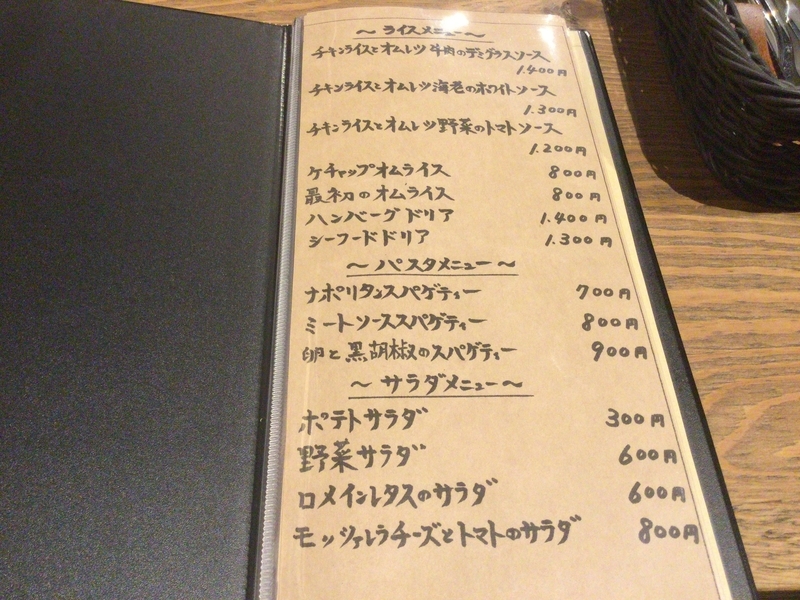 〜ライスメニュー〜
チキンライスとオムレツ 牛肉のデミグラスソース
1.400円
チキンライスとオムレツ 海老のホワイトソース
1.300円
チキンライスとオムレツ 野菜のトマトソース
1.200円
ケチャップオムライス 800円
最初のオムライス 800円
ハンバーグドリア 1.400円
シーフードドリア 1.300円
〜パスタメニュー〜
ナポリタンスパゲティー 700円
ミートソーススパゲティー 800円
卵と黒胡椒のスパゲティー 900円
〜サラダメニュー〜
ポテトサラダ 300円
野菜サラダ 600円
ロメインレタスのサラダ 600円
モッツァレラチーズとトマトのサラダ 800円